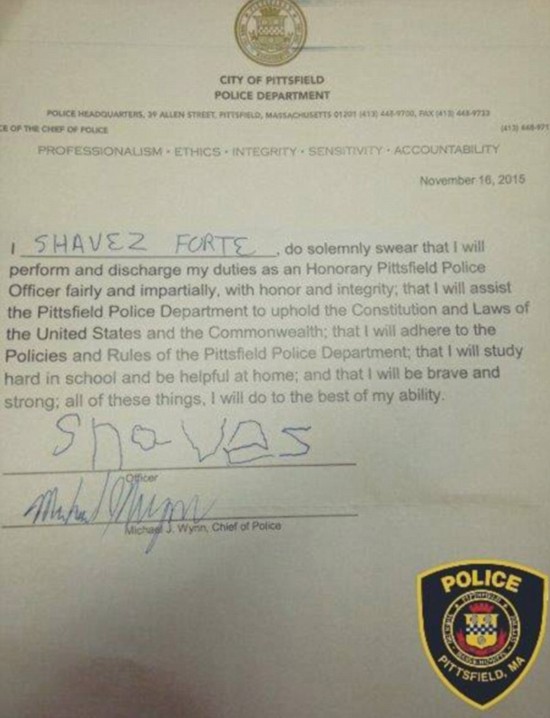 CITY OF PITTSFIELD
POLICE DEPARTMENT
POLICE HEADQUARTERS, 39 ALLEN STREET, PITTSFIELD, MASSACHUSETTS 01201 (413) 448-9700, FAX (413) 448-9733
CE OF THE CHIEF OF POLICE (413) 448-971
PROFESSIONALISM · ETHICS · INTEGRITY · SENSITIVITY · ACCOUNTABILITY
November 16, 2015
I SHAVEZ FORTE, do solemnly swear that I will
perform and discharge my duties as an Honorary Pittsfield Police
Officer fairly and impartially, with honor and integrity; that I will assist
the Pittsfield Police Department to uphold the Constitution and Laws of
the United States and the Commonwealth; that I will adhere to the
Policies and Rules of the Pittsfield Police Department; that I will study
hard in school and be helpful at home; and that I will be brave and
strong; all of these things, I will do to the best of my ability.
Shaves
Officer
Michael J Wynn
Michael J. Wynn, Chief of Police
POLICE
PITTSFIELD, MA